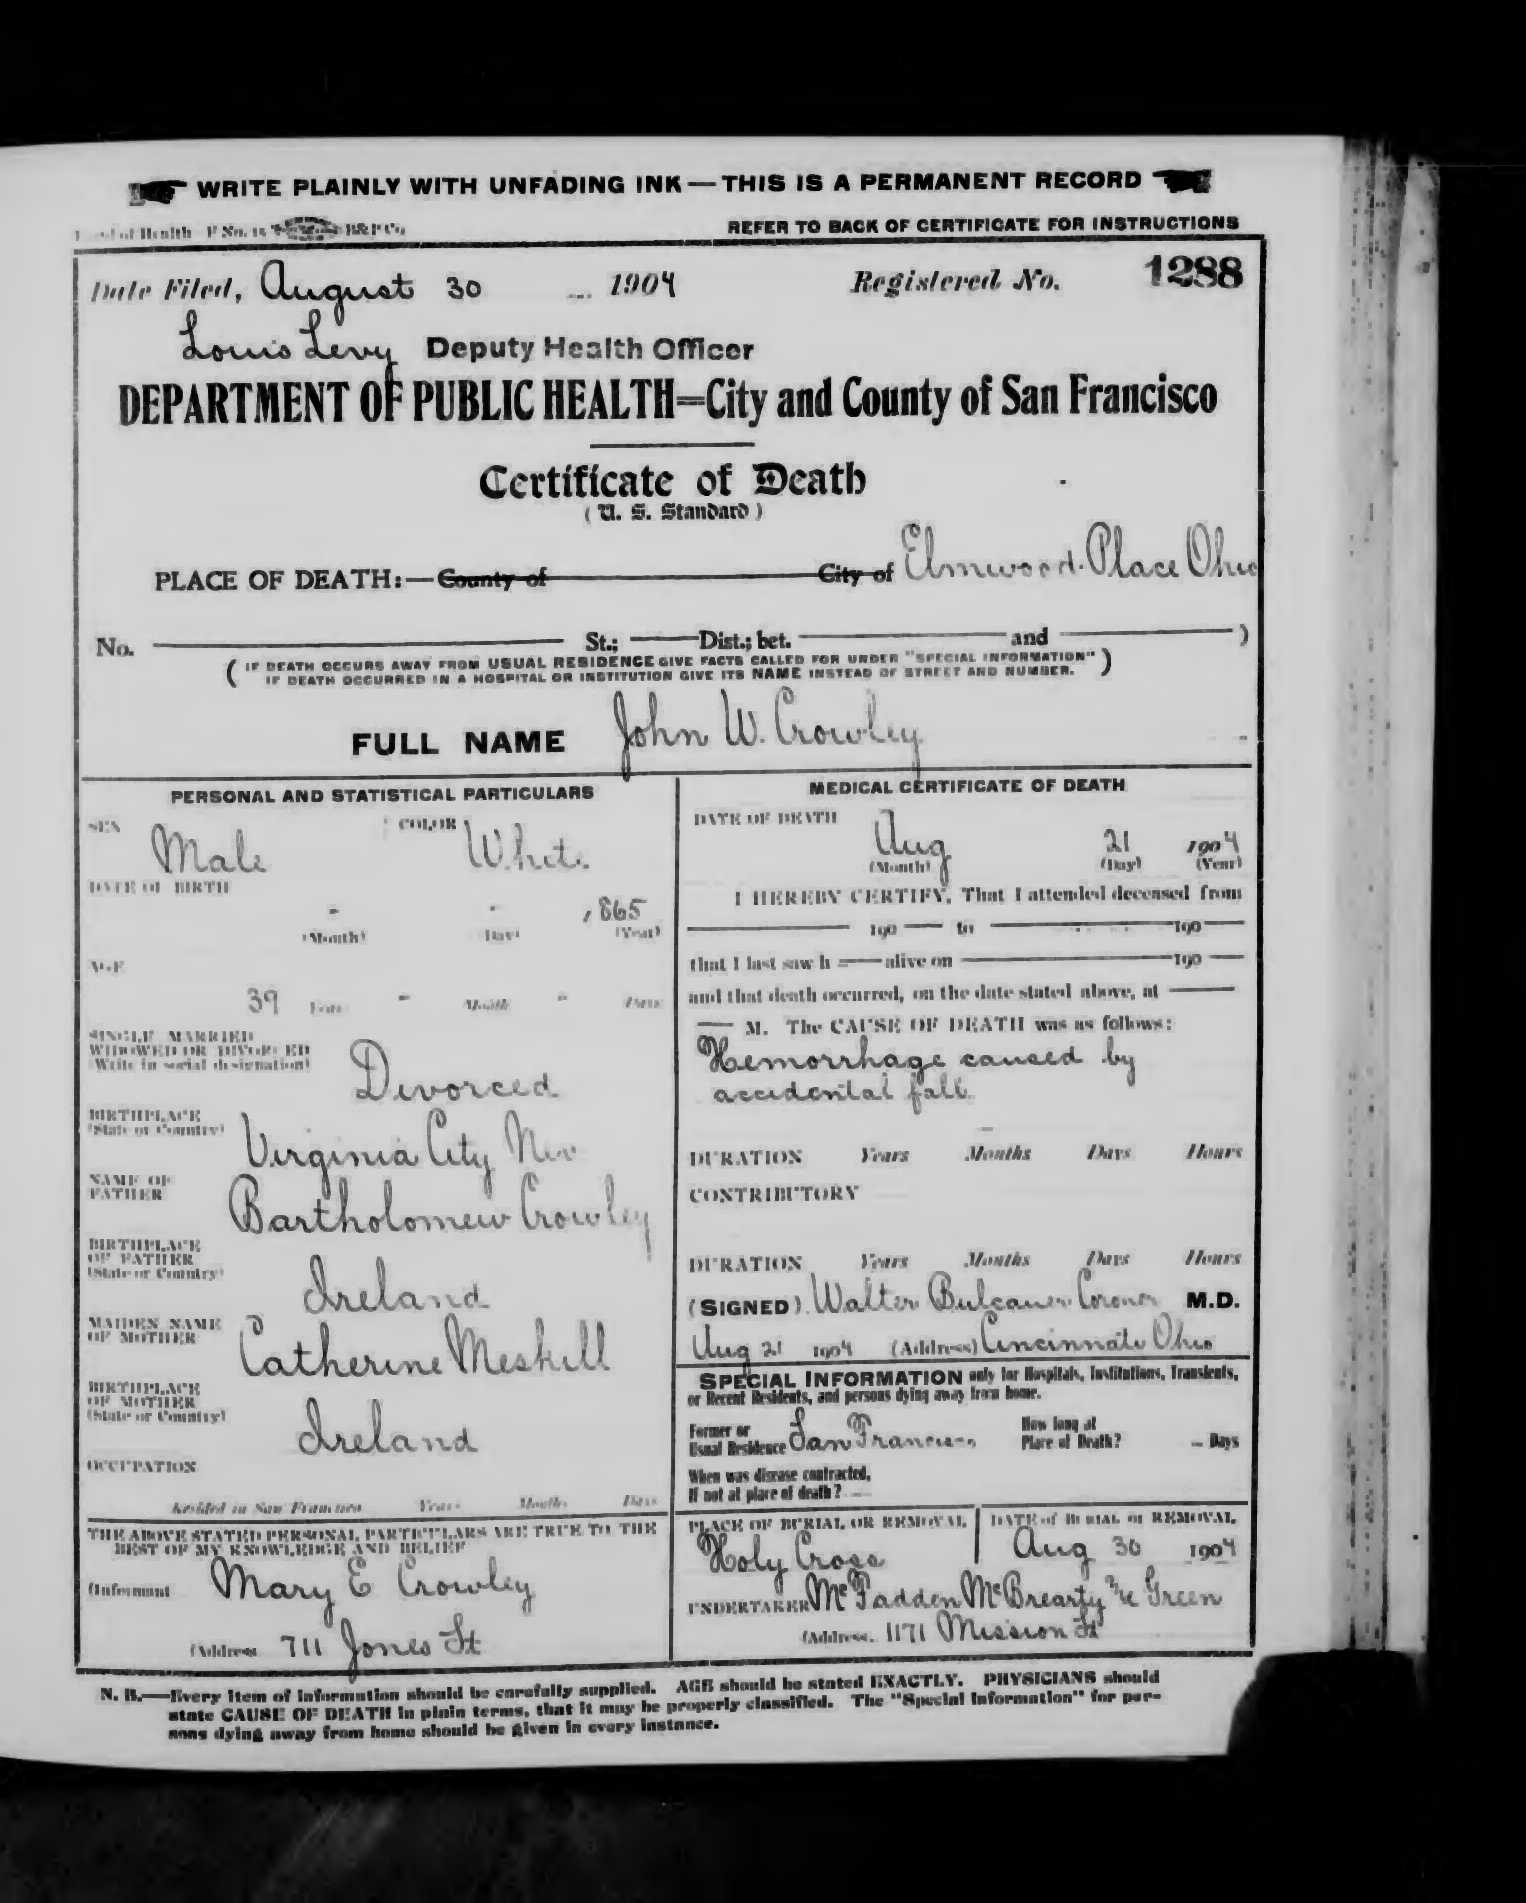 WRITE PLAINLY WITH UNFADING INK — THIS IS A PERMANENT RECORD
of Health F No. 15 B&P Co
REFER TO BACK OF CERTIFICATE FOR INSTRUCTIONS
Date Filed, August 30 1904 Registered No. 1288
Louis Levy Deputy Health Officer
DEPARTMENT OF PUBLIC HEALTH=City and County of San Francisco
Certificate of Death
(U. S. Standard)
PLACE OF DEATH:—County of City of Elmwood Place Ohio
No. St.; Dist.; bet. and )
( IF DEATH OCCURS AWAY FROM USUAL RESIDENCE GIVE FACTS CALLED FOR UNDER "SPECIAL INFORMATION" )
IF DEATH OCCURRED IN A HOSPITAL OR INSTITUTION GIVE ITS NAME INSTEAD OF STREET AND NUMBER.
FULL NAME John W. Crowley
PERSONAL AND STATISTICAL PARTICULARS
SEX Male COLOR White
DATE OF BIRTH
- - 1865
(Month) (Day) (Year)
AGE
39 Years - Months - Days
SINGLE MARRIED
WIDOWED OR DIVORCED
(Write in social designation)
Divorced
BIRTHPLACE
(State or Country)
Virginia City Nev
NAME OF
FATHER
Bartholomew Crowley
BIRTHPLACE
OF FATHER
(State or Country)
Ireland
MAIDEN NAME
OF MOTHER
Catherine Meskill
BIRTHPLACE
OF MOTHER
(State or Country)
Ireland
OCCUPATION
Resided in San Francisco Years Months Days
THE ABOVE STATED PERSONAL PARTICULARS ARE TRUE TO THE
BEST OF MY KNOWLEDGE AND BELIEF
(Informant Mary E Crowley
(Address 711 Jones St
MEDICAL CERTIFICATE OF DEATH
DATE OF DEATH
Aug 21 1904
(Month) (Day) (Year)
I HEREBY CERTIFY, That I attended deceased from
190 to 190
that I last saw h alive on 190
and that death occurred, on the date stated above, at
M. The CAUSE OF DEATH was as follows:
Hemorrhage caused by
accidental fall
DURATION Years Months Days Hours
CONTRIBUTORY
DURATION Years Months Days Hours
(SIGNED) Walter Coroner M.D.
Aug 21 1904 (Address) Cincinnati Ohio
SPECIAL INFORMATION only for Hospitals, Institutions, Transients,
or Recent Residents, and persons dying away from home.
Former or
Usual Residence San Francisco
How long at
Place of Death? - Days
When was disease contracted,
If not at place of death?
PLACE OF BURIAL OR REMOVAL
Holy Cross
DATE of BURIAL or REMOVAL
Aug 30 1904
UNDERTAKER McFadden McBrearty & Green
(Address. 1171 Mission St
N. B.—Every item of information should be carefully supplied. AGE should be stated EXACTLY. PHYSICIANS should
state CAUSE OF DEATH in plain terms, that it may be properly classified. The "Special Information" for per-
sons dying away from home should be given in every instance.